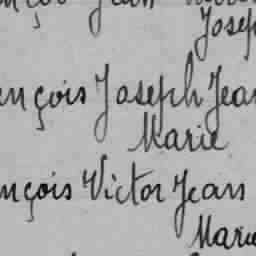 Jean
Joseph
ençois Joseph Jean
Marie
ençois Victor Jean
Marie